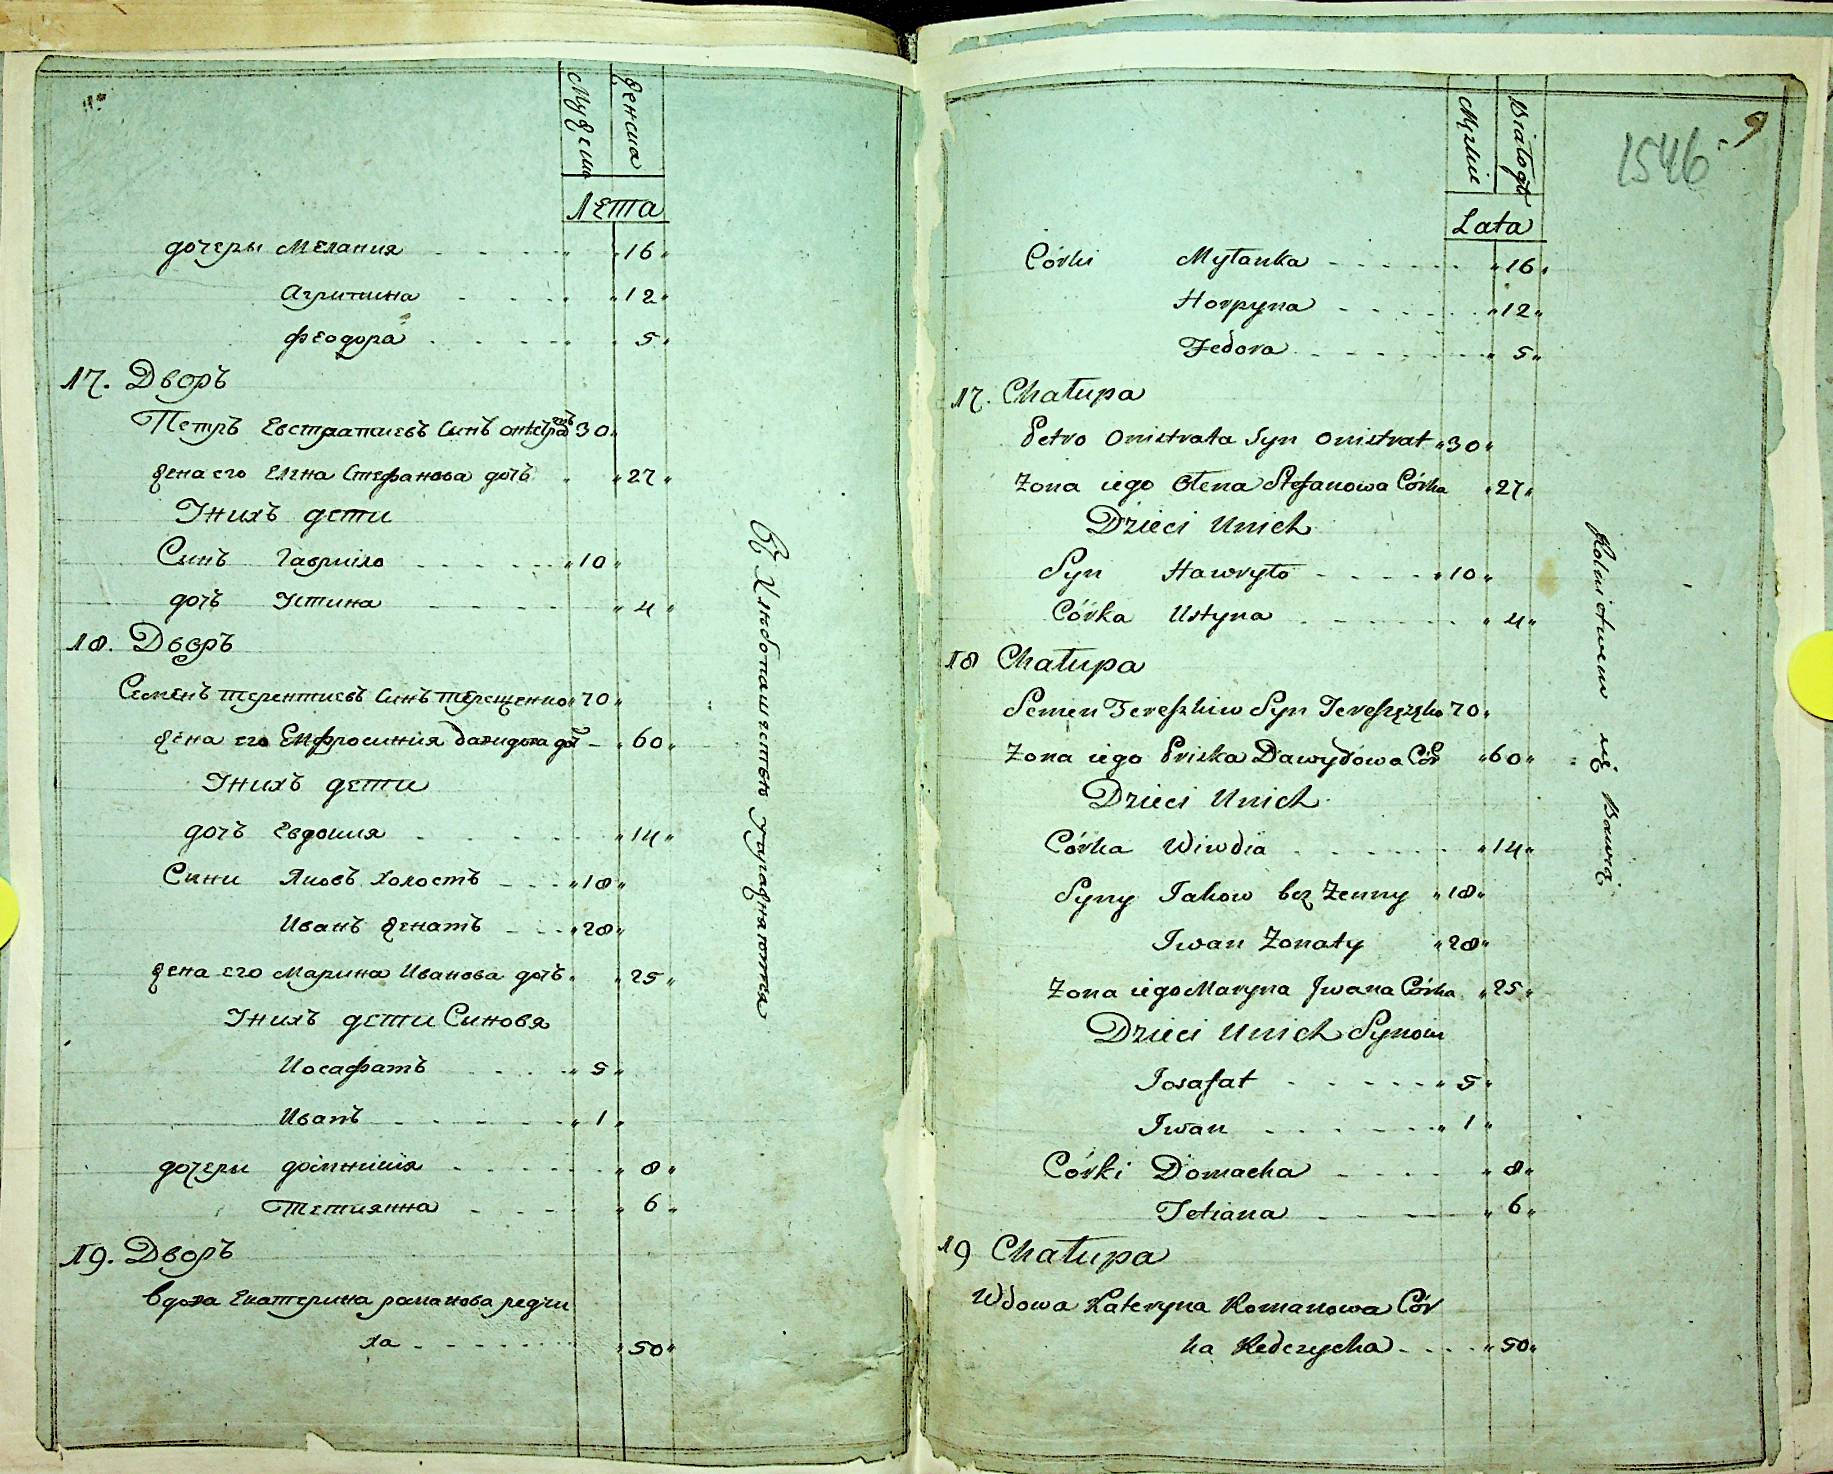 Мужеска
женска
Лета
дочеры Мелания 16
Агрипина 12
Феодора 5
17. Дворъ
Петръ Евстратиевъ Синъ 30
жена его Елена Стефанова дочъ 27
Унихъ дети
Синъ Гаврило 10
дочъ Устина 4
18. Дворъ
Семенъ терентиевъ Синъ терещенко 70
жена его Ефросиния давидова доч 60
Унихъ дети
дочъ Евдокия 14
Сини Яковъ холостъ 18
Иванъ женатъ 28
жена его Марина Иванова дочъ 25
Унихъ дети Синовя
Иосафатъ 5
Иванъ 1
дочеры домникия 8
Тетиянна 6
19. Дворъ
вдова Екатерина романова редчи
ха 50
Хлебопашествомъ упражняются
9
1546
Męzkie
Białogło
Lata
Córki Myłanka 16
Horpyna 12
Fedora 5
17. Chałupa
Petro Onistrata Syn Onistrat 30
Zona iego Ołena Stefanowa Córka 27
Dzieci Unich
Syn Hawryło 10
Córka Ustyna 4
18 Chałupa
Semen Tereszkiw Syn 70
Zona iego Priska Dawydowa Cór 60
Dzieci Unich
Córka Wiwdia 14
Syny Jakow bez Zenny 18
Iwan Zonaty 28
Zona iego Maryna Jwana Córka 25
Dzieci Unich Synow
Josafat 5
Iwan 1
Córki Domacha 8
Tetiana 6
19 Chałupa
Wdowa Kateryna Romanowa Cór
ka Redczycha 50
Rolnictwem się Bawią